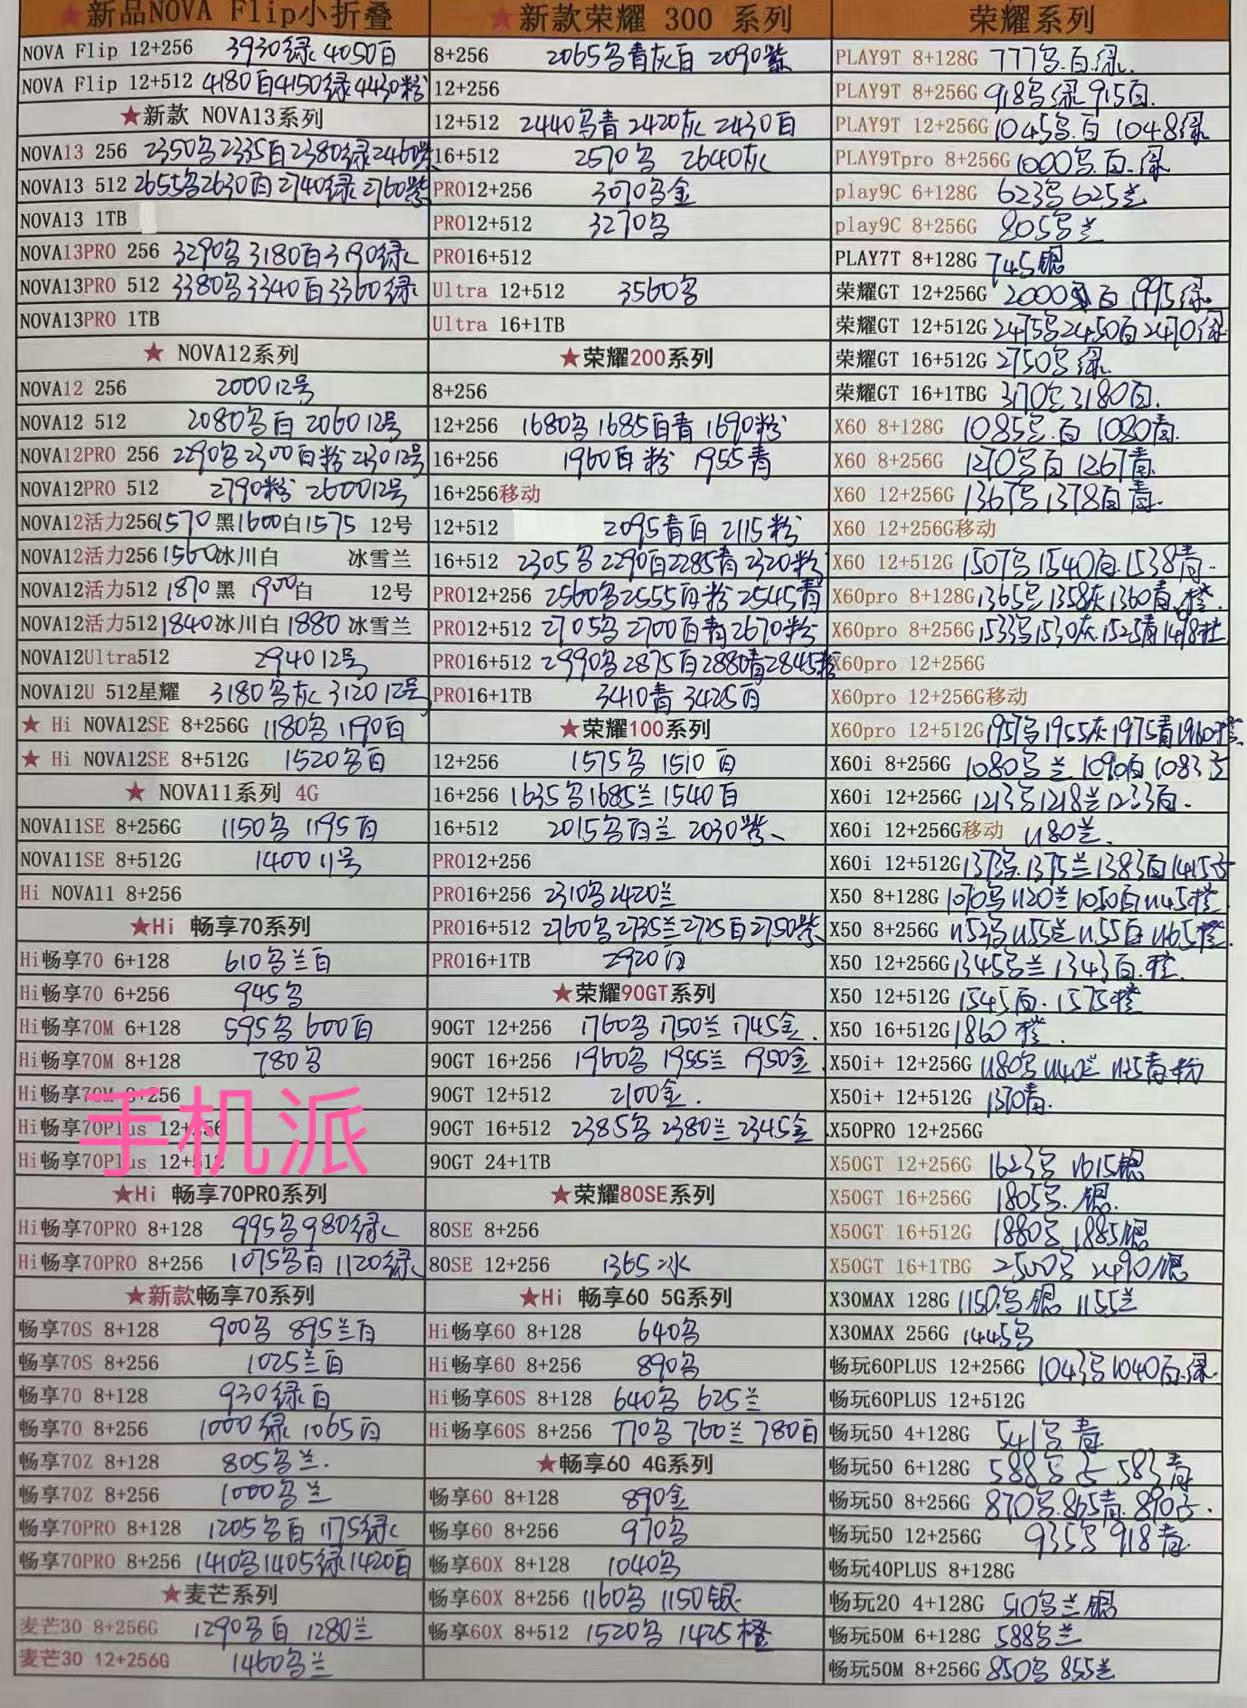 ★新品NOVA Flip小折叠
NOVA Flip 12+256 3930绿 4050白
NOVA Flip 12+512 4180白4150绿4430粉
★新款 NOVA13系列
NOVA13 256 2350 2335白2380绿2460紫
NOVA13 512 2655 2630白2740绿2760紫
NOVA13 1TB
NOVA13PRO 256 3290 3180白3190绿
NOVA13PRO 512 3380 3340白3360绿
NOVA13PRO 1TB
★ NOVA12系列
NOVA12 256 2000 12号
NOVA12 512 2080 白 2060 12号
NOVA12PRO 256 2290 2300白粉2230 12号
NOVA12PRO 512 2790粉 2600 12号
NOVA12活力256 1570黑1600白1575 12号
NOVA12活力256 1560冰川白 冰雪兰
NOVA12活力512 1870黑 1900白 12号
NOVA12活力512 1840冰川白1880 冰雪兰
NOVA12Ultra512 2940 12号
NOVA12U 512星耀 3180 灰 3120 12号
★ Hi NOVA12SE 8+256G 1180 1190白
★ Hi NOVA12SE 8+512G 1520 白
★ NOVA11系列 4G
NOVA11SE 8+256G 1150 1195白
NOVA11SE 8+512G 1400 11号
Hi NOVA11 8+256
★Hi 畅享70系列
Hi畅享70 6+128 610 兰白
Hi畅享70 6+256 945
Hi畅享70M 6+128 595 600白
Hi畅享70M 8+128 780
Hi畅享70M 8+256
Hi畅享70Plus 12+256
Hi畅享70Plus 12+512
手机派
★Hi 畅享70PRO系列
Hi畅享70PRO 8+128 995 980绿
Hi畅享70PRO 8+256 1075 白 1120绿
★新款畅享70系列
畅享70S 8+128 900 895兰白
畅享70S 8+256 1025兰白
畅享70 8+128 930绿白
畅享70 8+256 1000绿 1065白
畅享70Z 8+128 805 兰.
畅享70Z 8+256 1000 兰
畅享70PRO 8+128 1205 白 1175绿
畅享70PRO 8+256 1410 1405绿1420白
★麦芒系列
麦芒30 8+256G 1290 白 1280兰
麦芒30 12+256G 1460 兰
★新款荣耀 300 系列
8+256 2065 青灰白 2090紫
12+256
12+512 2440 青 2420灰 2430白
16+512 2570 2640灰
PRO12+256 3070 金
PRO12+512 3270
PRO16+512
Ultra 12+512 3560
Ultra 16+1TB
★荣耀200系列
8+256
12+256 1680 1685白青 1690粉
16+256 1960白粉 1955青
16+256移动
12+512 2095青白 2115粉
16+512 2305 2290白2285青2320粉
PRO12+256 2560 2555白粉 2545青
PRO12+512 2705 2700白青2670粉
PRO16+512 2990 2875白2880青2845粉
PRO16+1TB 3410青 3425白
★荣耀100系列
12+256 1575 1510 白
16+256 1635 1685兰1540白
16+512 2015 白兰 2030紫
PRO12+256
PRO16+256 2310 2420兰
PRO16+512 2760 2735兰2725白2750紫
PRO16+1TB 2920白
★荣耀90GT系列
90GT 12+256 1760 1750兰 1745金.
90GT 16+256 1960 1955兰 1950金
90GT 12+512 2100金.
90GT 16+512 2385 2380兰 2345金
90GT 24+1TB
★荣耀80SE系列
80SE 8+256
80SE 12+256 1365冰
★Hi 畅享60 5G系列
Hi畅享60 8+128 640
Hi畅享60 8+256 890
Hi畅享60S 8+128 640 625兰
Hi畅享60S 8+256 770 760兰 780白
★畅享60 4G系列
畅享60 8+128 890金
畅享60 8+256 970
畅享60X 8+128 1040
畅享60X 8+256 1160 1150银
畅享60X 8+512 1520 1425橙
荣耀系列
PLAY9T 8+128G 777 .白.绿.
PLAY9T 8+256G 918 绿 915白.
PLAY9T 12+256G 1045 .白 1048绿
PLAY9Tpro 8+256G 1000 .白.绿
play9C 6+128G 623 625兰
play9C 8+256G 805 兰
PLAY7T 8+128G 745银
荣耀GT 12+256G 2000 白 1995绿.
荣耀GT 12+512G 2475 2450白2470绿
荣耀GT 16+512G 2750 绿
荣耀GT 16+1TBG 3170 3180白.
X60 8+128G 1085 .白 1080青.
X60 8+256G 1270 白 1267青
X60 12+256G 1367 1378白青.
X60 12+256G移动
X60 12+512G 1507 1540白.1538青.
X60pro 8+128G 1365 1358灰1360青.橙.
X60pro 8+256G 1533 1530灰.1525青1498
X60pro 12+256G
X60pro 12+256G移动
X60pro 12+512G 1957 1955灰1975青1960橙.
X60i 8+256G 1080 兰 1090白 1083
X60i 12+256G 1213 1218兰1233白.
X60i 12+256G移动 1180兰.
X60i 12+512G 1373 .1375兰1383白1415
X50 8+128G 1070 1120兰1050白1145橙
X50 8+256G 1152 1155兰1155白1165橙.
X50 12+256G 1345 兰1343白.橙.
X50 12+512G 1545白.1575橙
X50 16+512G 1860 橙.
X50i+ 12+256G 1180 1140兰 1125青粉
X50i+ 12+512G 1370青.
X50PRO 12+256G
X50GT 12+256G 1623 1615银
X50GT 16+256G 1805 .银.
X50GT 16+512G 1880 1885银
X50GT 16+1TBG 2500 2490银
X30MAX 128G 1150. 银 1155兰
X30MAX 256G 1445
畅玩60PLUS 12+256G 1043 1040白.绿.
畅玩60PLUS 12+512G
畅玩50 4+128G 541 青
畅玩50 6+128G 588 583青
畅玩50 8+256G 870 .865青.890
畅玩50 12+256G 935 918青
畅玩40PLUS 8+128G
畅玩20 4+128G 510 兰银
畅玩50M 6+128G 588 兰
畅玩50M 8+256G 850 855兰